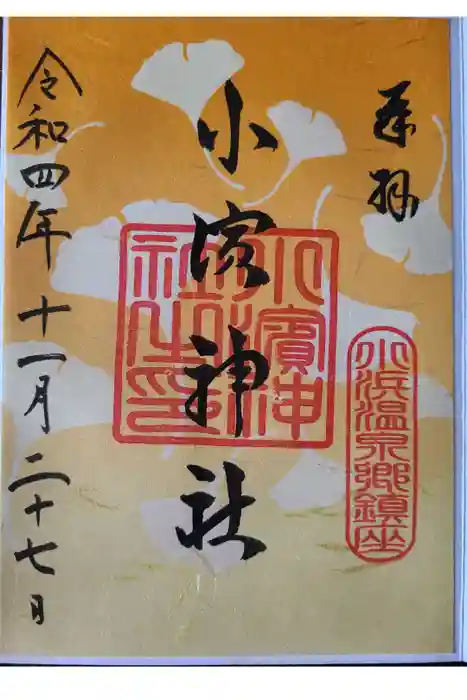 奉拝
小浜温泉郷鎮座
小濵神社
小濱神
社之印
令和四年十一月二十七日